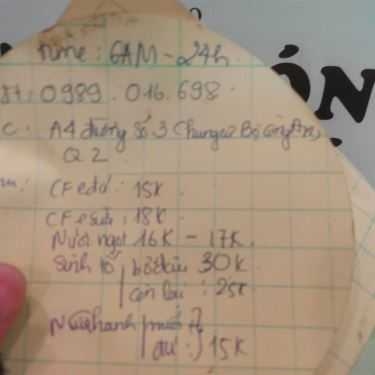 ÓN
time: 6AM - 24h
đt: 0989.016.698
đ/c: A4 đường số 3 Chung cư Bộ Công An,
Q2
CF đá: 15K
CF sữa: 18K
Nước ngọt 16K - 17K
Sinh tố bơ dầu 30K
còn lại: 25K
15K